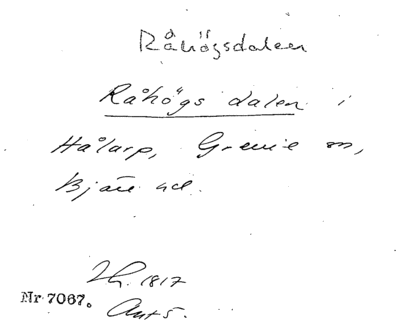 Råhögsdalen
Råhögs dalen i
Hålarp, Grevie sn,
Bjäre hd.
Lh. 1817
Nr 7067.
Ant 5.